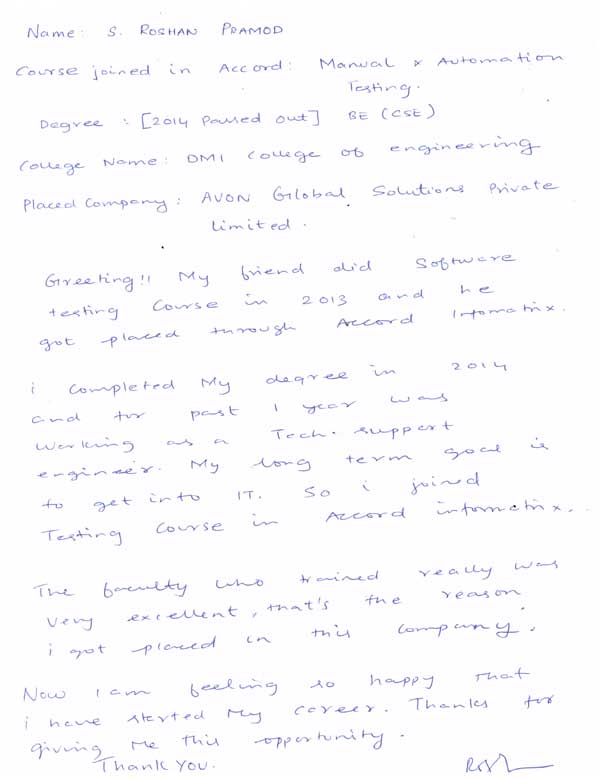 Name: S. ROSHAN PRAMOD
Course joined in Accord: Manual & Automation
Testing.
Degree : [2014 Passed out] BE (CSE)
College Name: DMI College of engineering
Placed Company: AVON Global Solutions Private
Limited.
Greeting!! My friend did Software
testing Course in 2013 and he
got placed through Accord Infomatrix.
i completed My degree in 2014
and for past 1 year was
working as a Tech. support
engineer. My long term goal is
to get into IT. So i joined
Testing Course in Accord informatrix.
The faculty who trained really was
very excellent, that's the reason
i got placed in this company.
Now I am feeling so happy that
i have started My career. Thanks for
giving Me this opportunity.
Thank You.